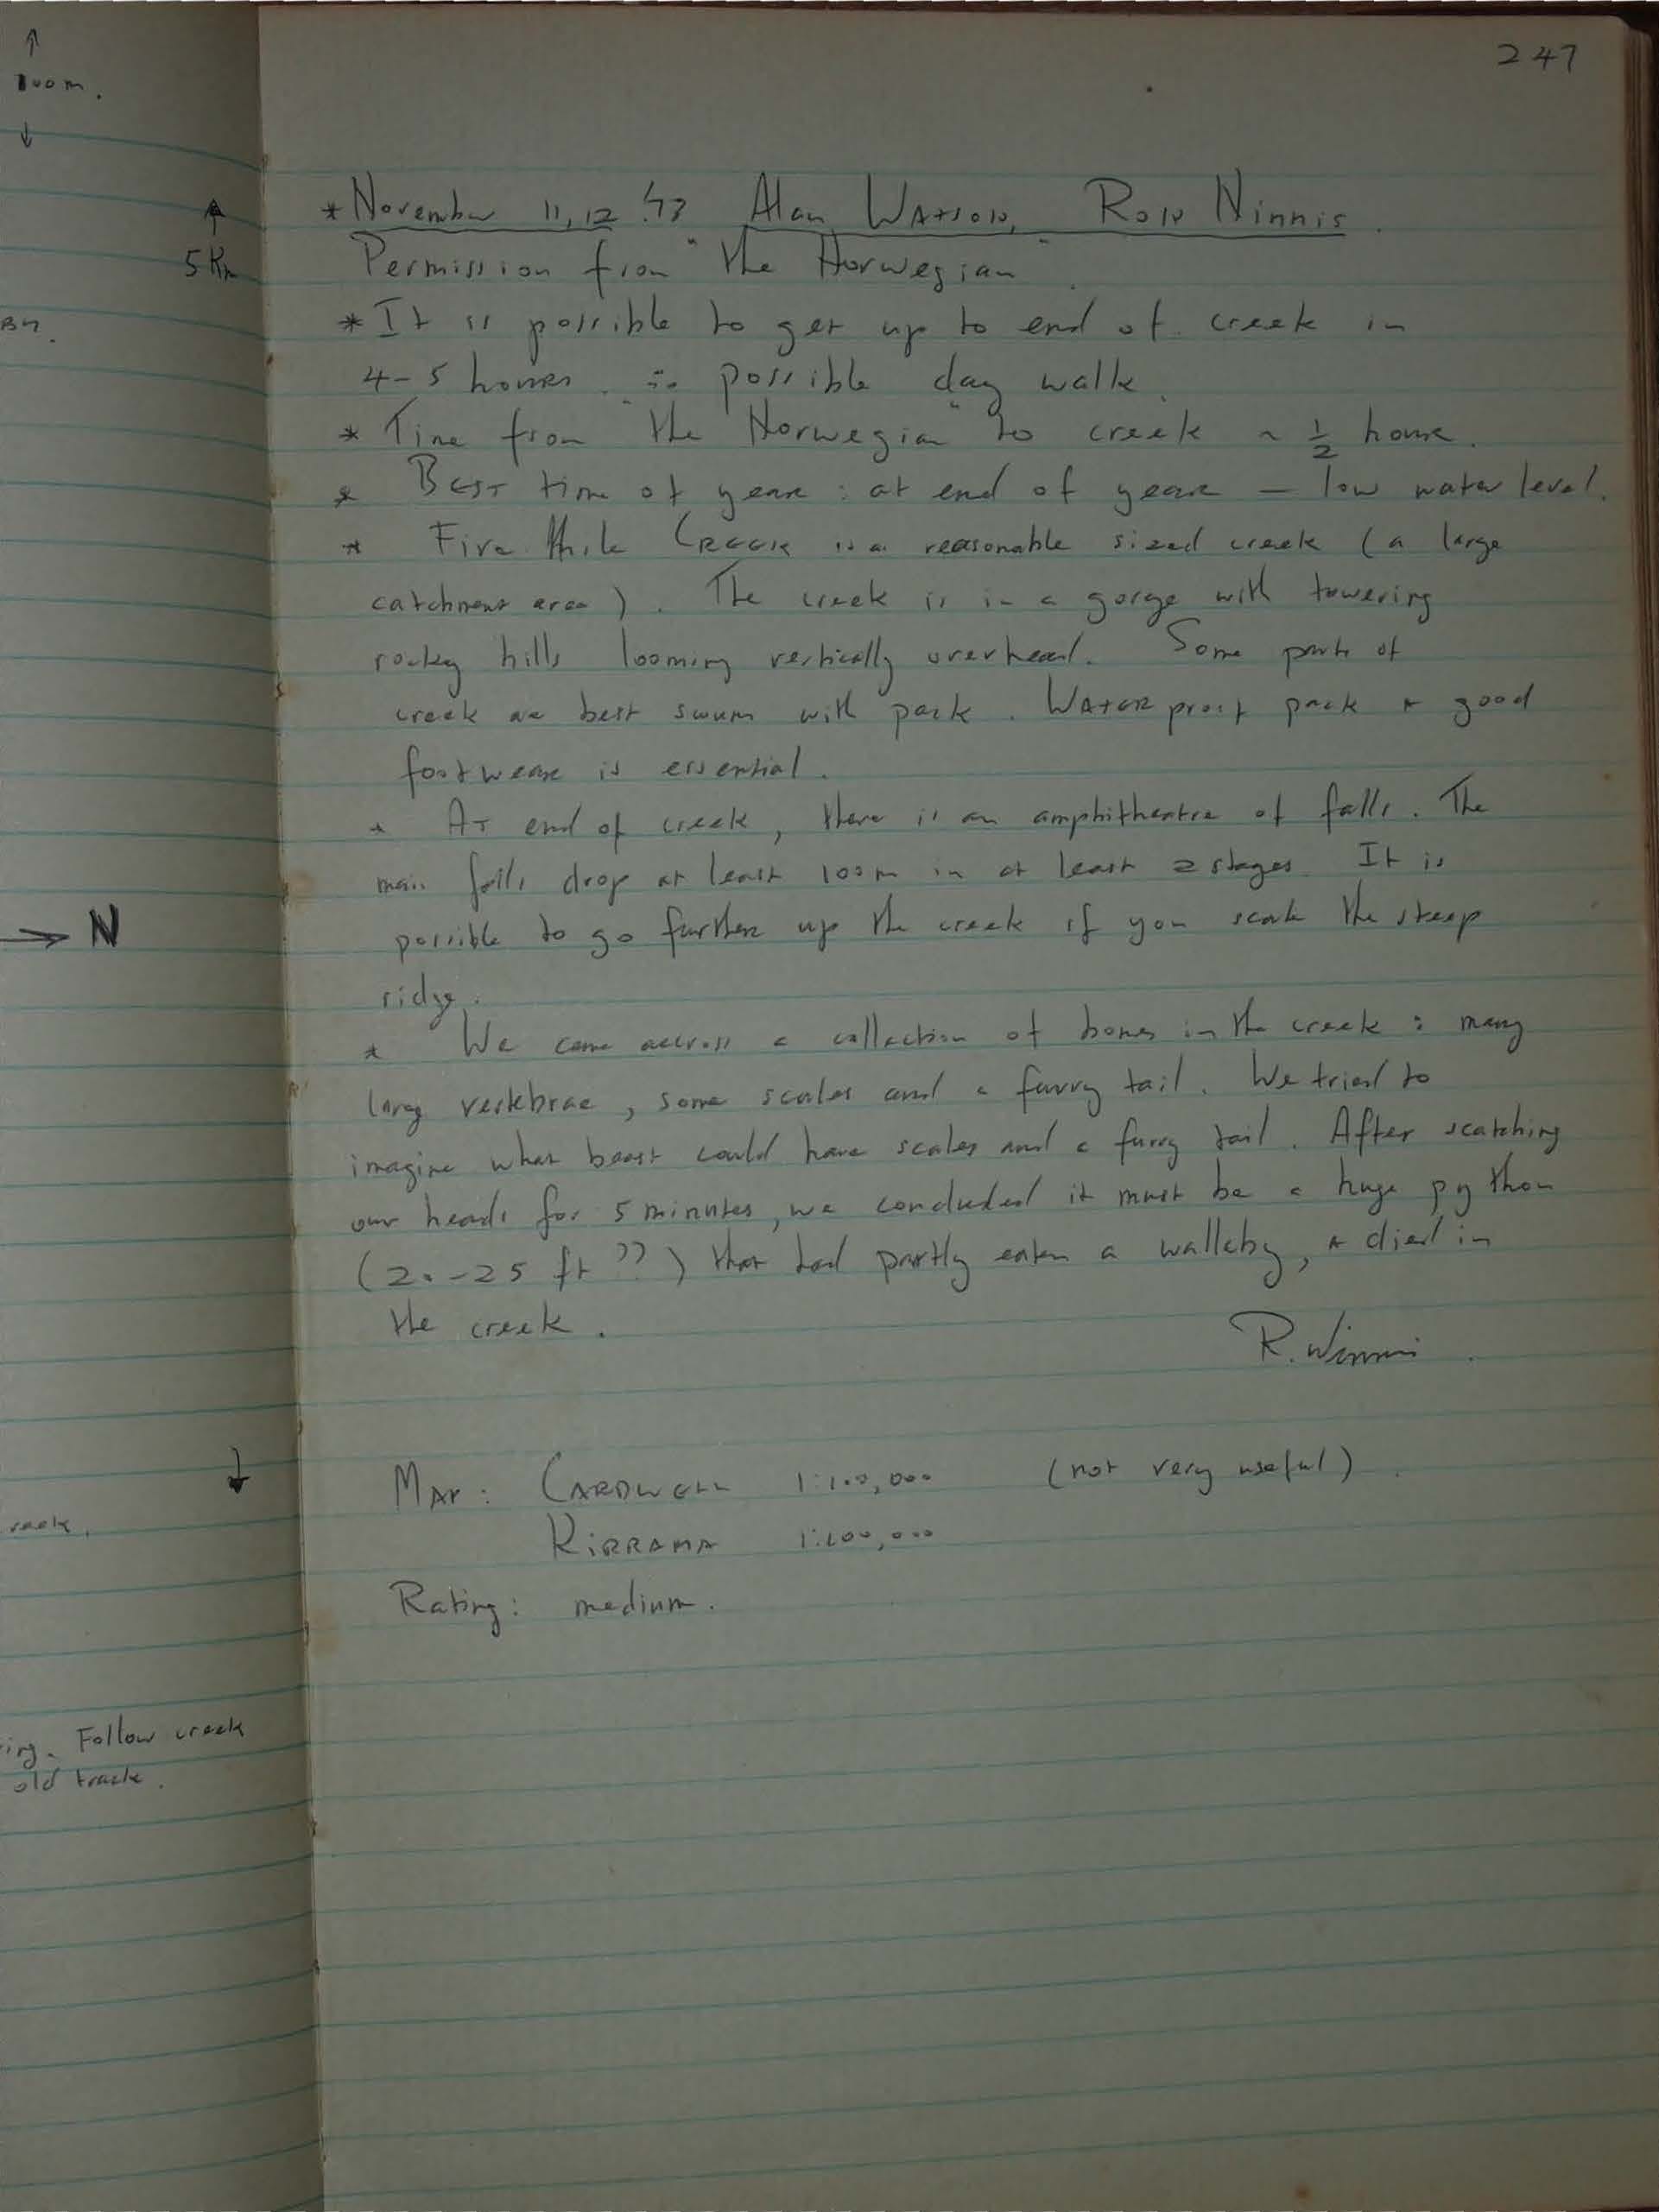 247
100m.
5 Km
* November 11, 12 '73 Alan Watson, Ron Ninnis.
Permission from "the Norwegian".
* It is possible to get up to end of creek in
4-5 hours. ∴ possible day walk.
* Time from "the Norwegian" to creek ~ ½ hour.
* Best time of year: at end of year — low water level.
* Five Mile Creek is a reasonable sized creek (a large
catchment area). The creek is in a gorge with towering
rocky hills looming vertically overhead. Some parts of
creek are best swum with pack. Water proof pack & good
footwear is essential.
* At end of creek, there is an amphitheatre of falls. The
main falls drop at least 100m in at least 2 stages. It is
possible to go further up the creek if you scale the steep
ridge.
N
* We came accross a collection of bones in the creek: many
large vertebrae, some scales and a furry tail. We tried to
imagine what beast could have scales and a furry tail. After scatching
our heads for 5 minutes, we concluded it must be a huge python
(20-25 ft ??) that had partly eaten a wallaby, & died in
the creek.
Map: Cardwell 1:100,000 (not very useful).
Kirrama 1:100,000
Rating: medium.
Follow creek
old track.